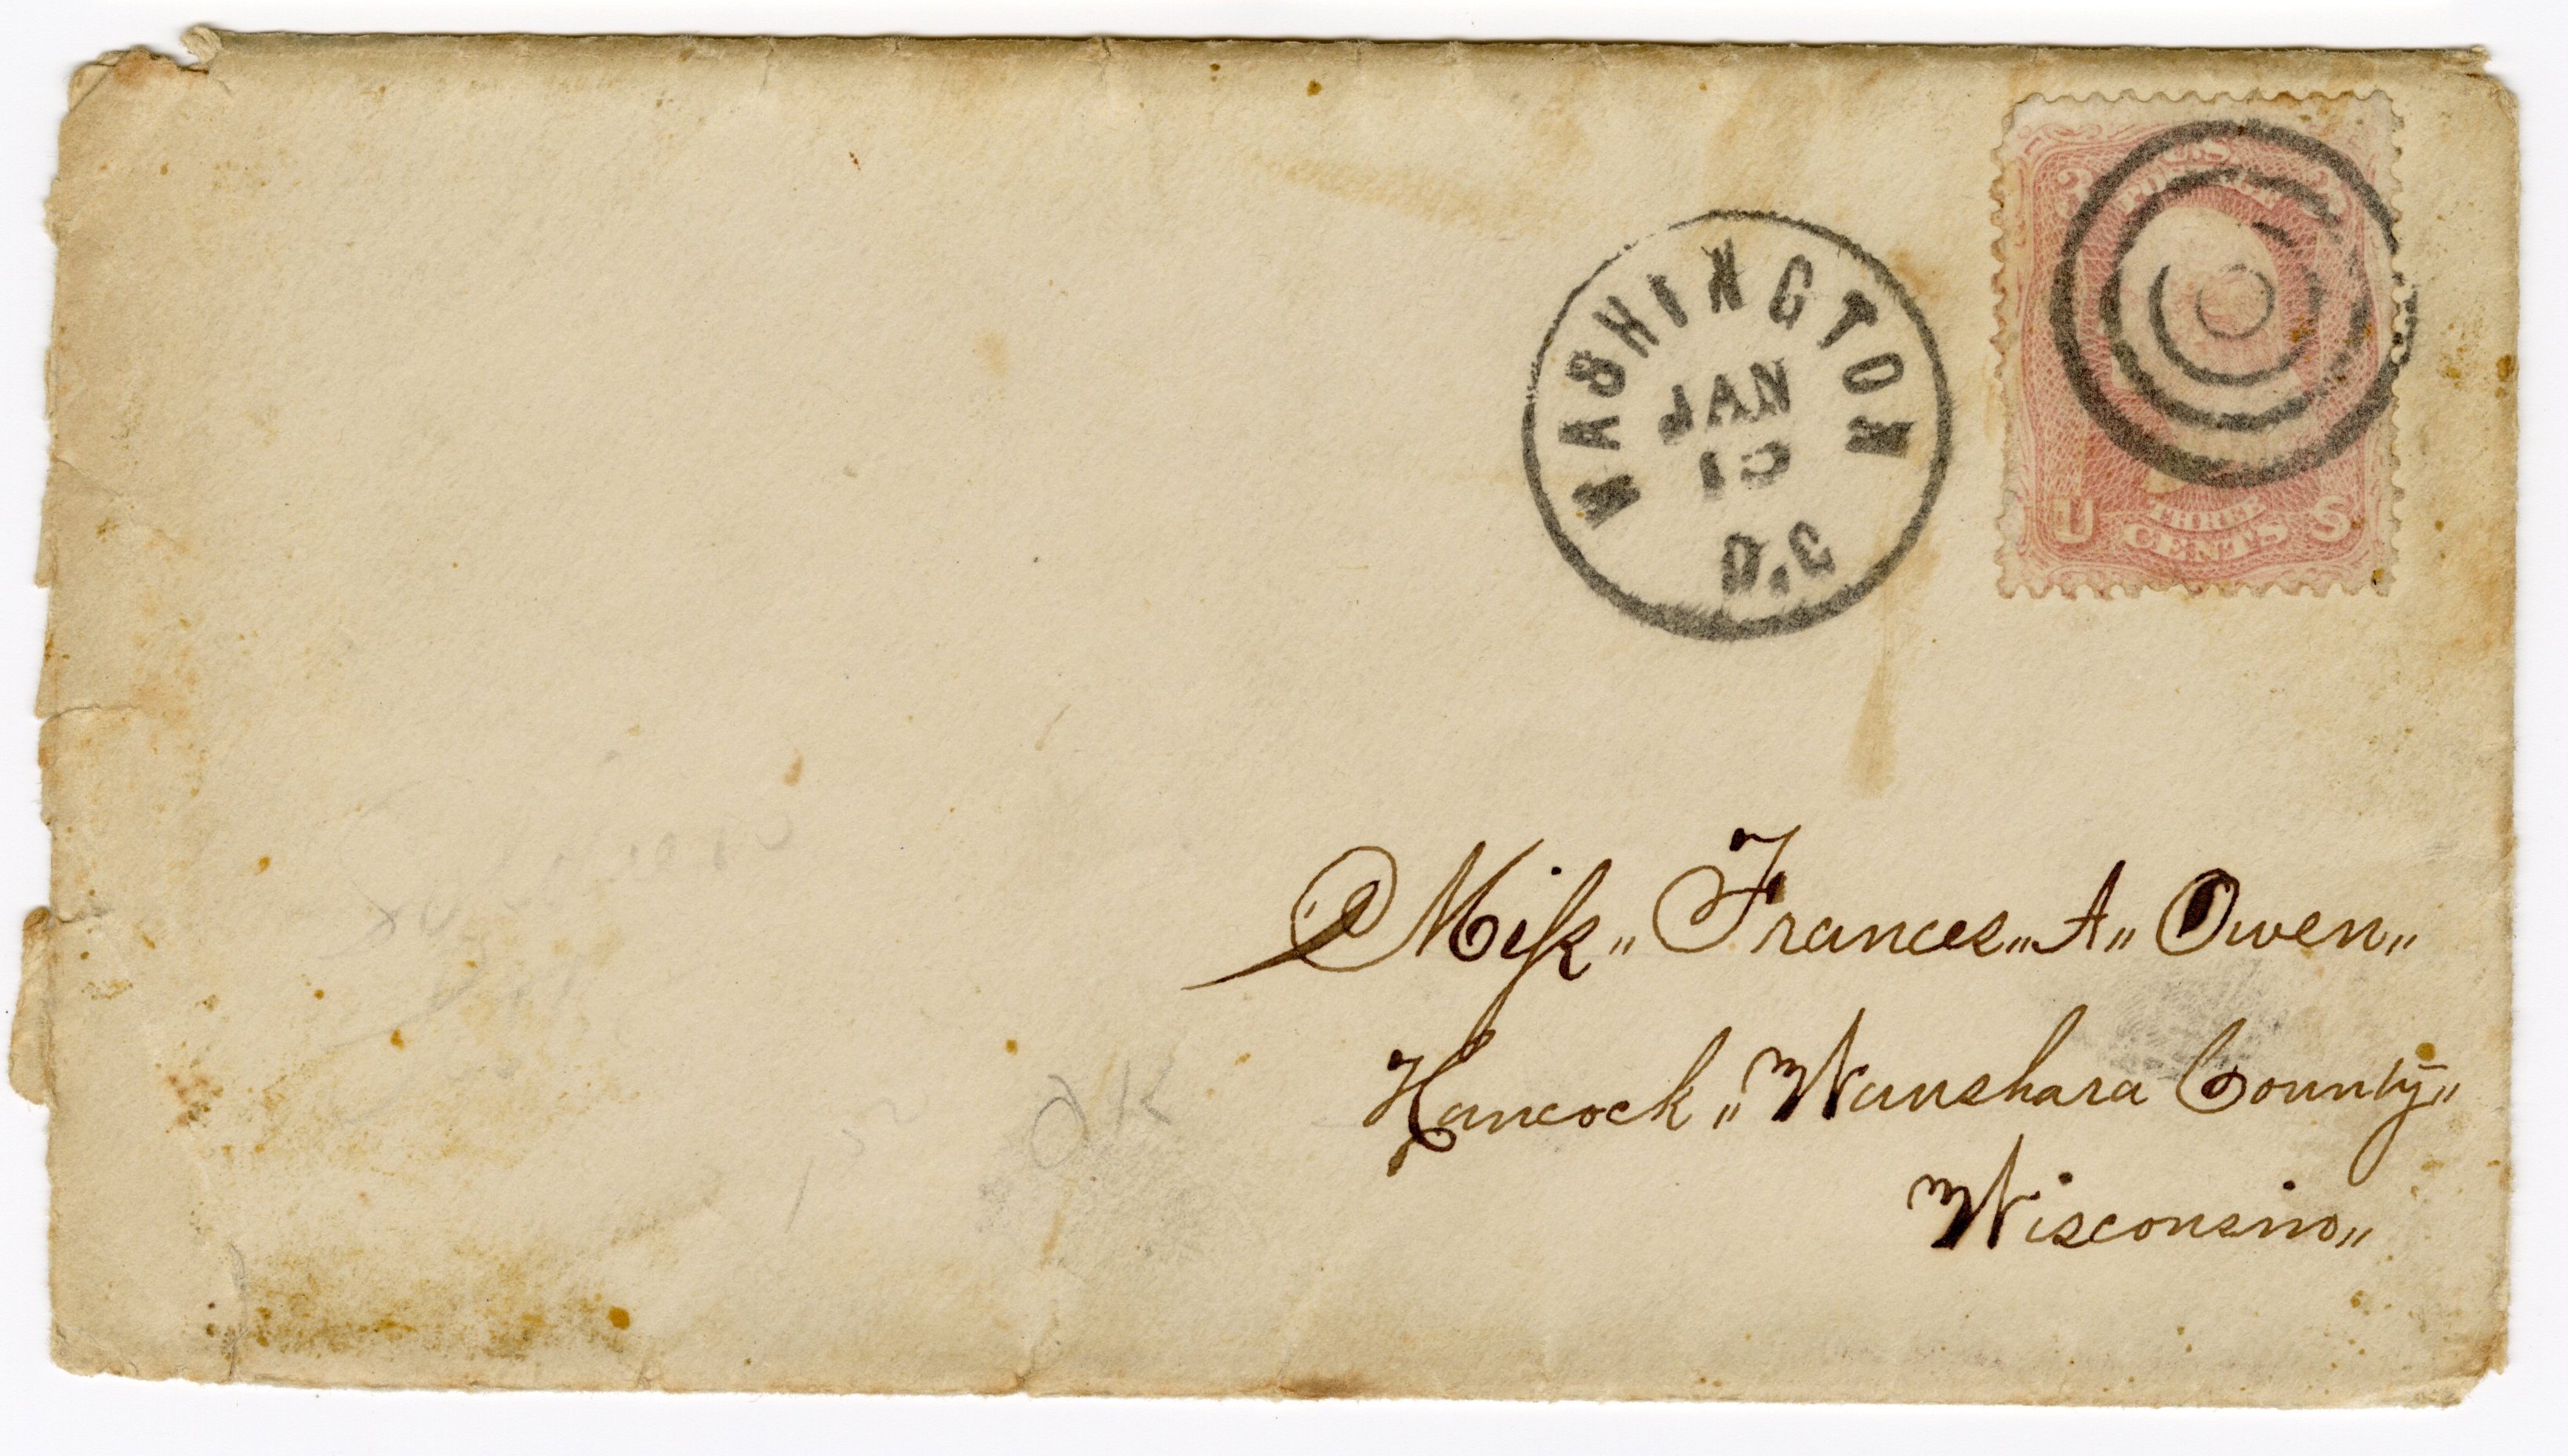 WASHINGTON
JAN
D.C
U.S
3 3
U THREE S
CENTS
Miſs„ Frances„ A„ Owen„
Hancock„ Waushara County„
Wisconsin„